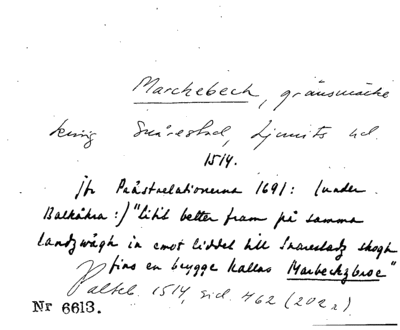 Marchebech, gränsmärke
kring Snårestad, Ljunits hd.
1514.
jfr Prästrelationerna 1691: (under
Balkåkra:) "litit better fram på samma
landzwägh in emot liddel till Snarestadz skogh
fins en brygge kallas Marbeckzbroe"
Palteb. 1514, sid. 462 (202 r)
Nr 6613.